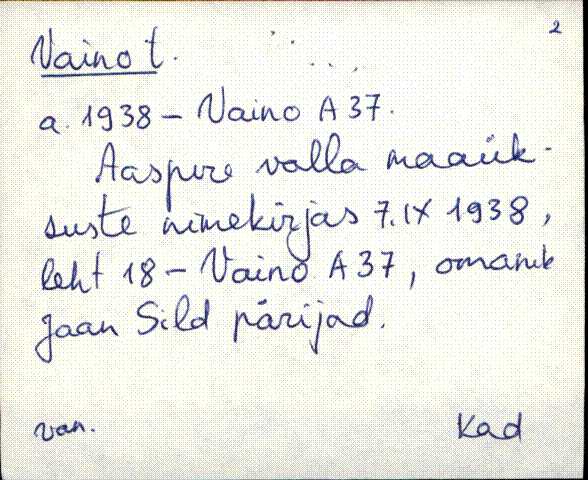 2
Vaino t.
a. 1938 – Vaino A 37.
Aaspere valla maaük-
suste nimekirjas 7. IX 1938,
leht 18 – Vaino A 37, omanik
Jaan Sild pärijad.
van. Kad